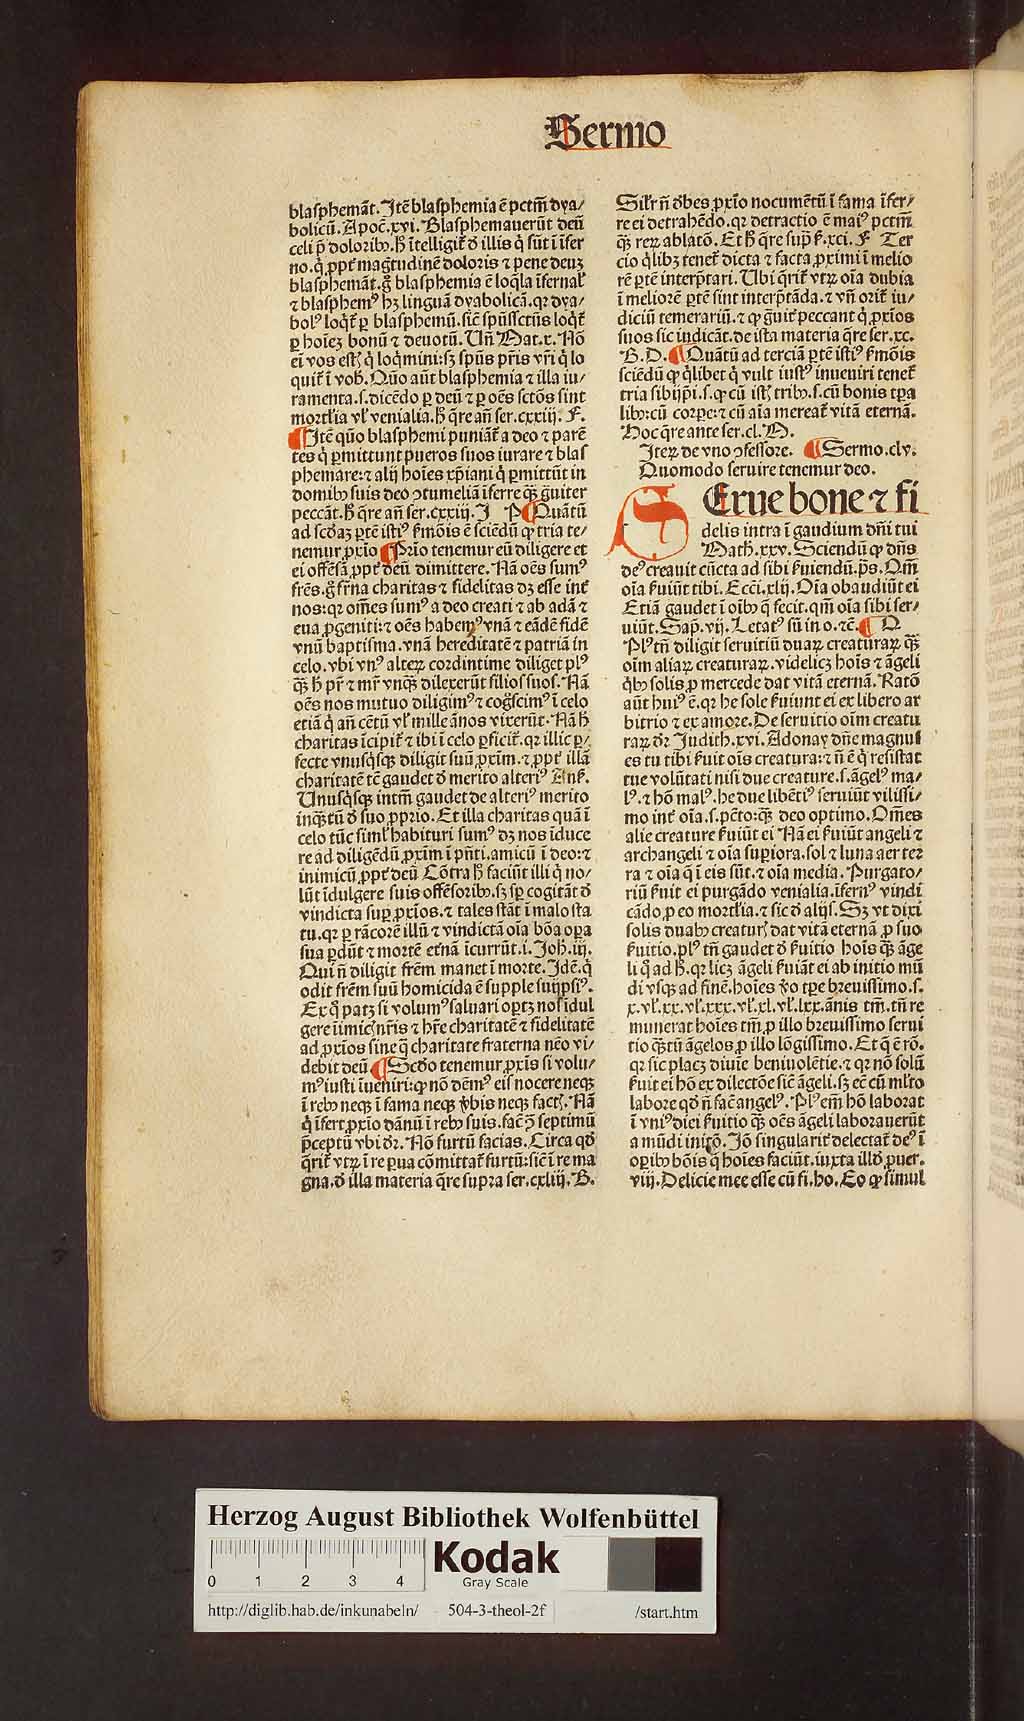 Sermo
blasphemāt. Itē blasphemia ē pctm̄ dya/
bolicū. Apoc̄. xvi. Blasphemauerūt deū
celi p̄ doloribꝫ. h̄ ītelligit̄ đ illis q̇ sūt ī īfer
no. q̇ ꝓpt̄ magtudinē doloris ⁊ pene deuꝫ
blasphemāt. gͦ blasphemia ē loq̄la īfernal̄
⁊ blasphemꝰ hꝫ linguā dyabolicā. qꝛ dya/
bolꝰ loq̇t̄ ꝑ blasphemū. sic̄ spūssctūs loq̇t̄
ꝑ hoīeꝫ bonū ⁊ deuotū. Vn̄ Mat. x. Nō
ei vos estꝭ q̇ loq̇mini: sꝫ spūs pr̄is vr̄i q̇ lo
quit̄ ī vob̄. Quo aūt blasphemia ⁊ illa iu/
ramenta. s. dicēdo ꝑ deū ⁊ ꝑ oēs sctōs sint
mortl̄ia vl̄ venialia. h̄ q̄re an̄ ser. cxxiij. F.
¶ Itē quo blasphemi puniāt̄ a deo ⁊ parē
tes q̇ ꝑmittunt pueros suos iurare ⁊ blas
phemare: ⁊ alij hoīes xp̄iani q̇ ꝑmittūt in
domibꝫ suis deo ꝯtumeliā īferre qꝫ̄ ḡuiter
peccāt. h̄ q̄re an̄ ser. cxxiij. I P ¶ Quātū
ad scd̄aꝫ ꝑtē istiꝰ ẜmōis ē sciēdū ꝙ tria te/
nemur ꝓxio ¶ Prīo tenemur eū diligere et
ei offēsā ꝓpt̄ deū dimittere. Nā oēs sumꝰ
fr̄es. gͦ fr̄na charitas ⁊ fidelitas dꝫ esse int̄
nos: qꝛ om̄es sumꝰ a deo creati ⁊ ab adā ⁊
eua ꝓgeniti: ⁊ oēs habemꝰ vnā ⁊ eādē fidē
vnū baptisma. vnā hereditatē ⁊ patriā in
celo. vbi vnꝰ alteꝝ cordintime diliget plꝰ
qꝫ̄ h̄ pr̄ ⁊ mr̄ vnqꝫ̄ dilexerūt filios suos. Nā
oēs nos mutuo diligimꝰ ⁊ cog̊scimꝰ ī celo
etiā q̇ an̄ cētū vl̄ mille ānos vixerūt. Nā h̄
charitas īcipit̄ ⁊ ibi ī celo ꝑficit̄. qꝛ illic ꝑ/
fecte vnusq̇sqꝫ diligit suū ꝓxim̄. ⁊ ꝓpt̄ illā
charitatē tē gaudet đ merito alteriꝰ Anẜ.
Vnusq̇sqꝫ intm̄ gaudet de alteriꝰ merito
inqꝫ̄tū đ suo ꝓprio. Et illa charitas quā ī
celo tūc siml̄ habituri sumꝰ dꝫ nos īduce
re ad diligēdū ꝓxīm ī p̄nti. amicū ī deo: ⁊
inimicū ꝓpt̄ deū Cōtra h̄ faciūt illi q̇ no/
lūt īdulgere suis offēsoribꝫ. sꝫ sꝑ cogitāt đ
vindicta suꝑ ꝓxīos. ⁊ tales stāt ī malo sta
tu. qꝛ ꝑ rācorē illū ⁊ vindictā oīa bōa oꝑa
sua ꝑdūt ⁊ mortē etn̄ā īcurrūt. i. Joh̄. iij.
Qui n̄ diligit frēm manet ī morte. Idē. q̇
odit frēm suū homicida ē supple suijpsiꝰ.
Ex q̊ patꝫ si volumꝰ saluari oꝑtꝫ nos īdul
gere īimicꝭ nr̄is ⁊ hr̄e charitatē ⁊ fidelitatē
ad ꝓxīos sine q̄ charitate fraterna nēo vi/
debit deū ¶ Scd̄o tenemur ꝓxīs si volu/
mꝰ iusti īueniri: ꝙ nō dem̄ꝰ eis nocere neqꝫ
ī rebꝫ neqꝫ ī fama neqꝫ v̄bis neqꝫ factꝭ. Nā
q̇ īfert ꝓxio dānū ī rebꝫ suis. fac̄ ꝯ̄ septimū
p̄ceptū vbi dr̄. Nō furtū facias. Circa qđ
q̄rit̄ vtꝝ ī re ꝑua cōmittat̄ furtū: sic̄ ī re ma
gna. đ illa materia q̄re supra ser. cxliij. B.
Silr̄ n̄ đbes ꝓxīo nocumētū ī fama īfer/
re ei detrahēdo. qꝛ detractio ē maiꝰ pctm̄
qꝫ̄ reꝝ ablatō. Et h̄ q̄re supͣ ẜ. xci. F Ter
cio q̇libꝫ tenet̄ dicta ⁊ facta ꝓximi ī melio
rē ꝑtē interp̄tari. Vbi q̄rit̄ vtꝝ oīa dubia
ī meliorē ꝑtē sint interp̄tāda. ⁊ vn̄ orit̄ iu/
diciū temerariū. ⁊ ꝙ ḡuit̄ peccant q̇ ꝓxīos
suos sic iudicāt. de ista materia q̄re ser. xc.
B. D. ¶ Quātū ad terciā ꝑtē istiꝰ ẜmōis
sciēdū ꝙ q̇libet q̇ vult iustꝰ inueniri tenet̄
tria sibijp̄i. s. ꝙ cū istꝭ tribꝫ. s. cū bonis tp̄a
libꝫ: cū corꝑe: ⁊ cū aīa mereat̄ vitā eternā.
Hoc q̄re ante ser. cl. M.
Iteꝝ de vno ꝯfessore. ¶ Sermo. clv.
Quomodo seruire tenemur deo.
SErue bone ⁊ fi
delis intra ī gaudium dn̄i tui
Math. xxv. Sciendū ꝙ dn̄s
deꝰ creauit cūcta ad sibi ẜuiendū. p̄s. Qm̄
oīa ẜuiūt tibi. Ecci. xlij. Oīa obaudiūt ei
Etiā gaudet ī oībꝫ q̄ fecit. qm̄ oīa sibi ser/
uiūt. Sap̄. vij. Letatꝰ sū in o. ⁊c̄. ¶ Q
Plꝰ tn̄ diligit seruitiū duaꝝ creaturaꝝ qꝫ̄
oīm aliaꝝ creaturaꝝ. videlicꝫ hoīs ⁊ āgeli
q̇bꝫ solis ꝓ mercede dat vitā eternā. Ratō
aūt huiꝰ ē. qꝛ he sole ẜuiunt ei ex libero ar
bitrio ⁊ ex amore. De seruitio oīm creatu
raꝝ dr̄ Judith. xvi. Adonay dn̄e magnus
es tu tibi ẜuit oīs creatura: ⁊ n̄ ē q̇ resistat
tue volūtati nisi due creature. s. āgelꝰ ma/
lꝰ. ⁊ hō malꝰ. he due libētiꝰ seruiūt vilissi/
mo int̄ oīa. s. pctō: qꝫ̄ deo optimo. Om̄es
alie creature ẜuiūt ei Nā ei ẜuiūt angeli ⁊
archangeli ⁊ oīa suꝑiora. sol ⁊ luna aer ter
ra ⁊ oīa q̄ ī eis sūt. ⁊ oīa media. Purgato/
riū ẜuit ei purgādo venialia. īfernꝰ vindi
cādo ꝓ eo mortl̄ia. ⁊ sic đ alijs. Sꝫ vt dixi
solis duabꝫ creaturꝭ dat vitā eternā ꝓ suo
ẜuitio. plꝰ tn̄ gaudet đ ẜuitio hoīs qꝫ̄ āge
li q̇ ad h̄. qꝛ licꝫ āgeli ẜuiāt ei ab initio mū
di vsqꝫ ad finē. hoīes v̄o tp̄e breuissimo. s.
x. vl̄. xx. vl̄. xxx. vl̄. xl. vl̄. lxx. ānis tm̄. tn̄ re
munerat hoīes tm̄ ꝓ illo breuissimo serui
tio qꝫ̄tū āgelos ꝓ illo lōgissimo. Et q̄ ē rō.
qꝛ sic placꝫ diuie beniuolētie. ⁊ qꝛ nō solū
ẜuit ei hō ex dilectōe sic̄ āgeli. sꝫ ec̄ cū ml̄to
labore qđ n̄ fac̄ angelꝰ. Plꝰ em̄ hō laborat
ī vniꝰ diei ẜuitio qꝫ̄ oēs āgeli laborauerūt
a mūdi initō. Iō singularit̄ delectat̄ deꝰ ī
oꝑibꝫ bōis q̄ hoīes faciūt. iuxta illđ ꝓuer.
viij. Delicie mee esse cū fi. ho. Eo ꝙ simul
Herzog August Bibliothek Wolfenbüttel
0 1 2 3 4
Kodak
Gray Scale
http://diglib.hab.de/inkunabeln/ 504-3-theol-2f /start.htm